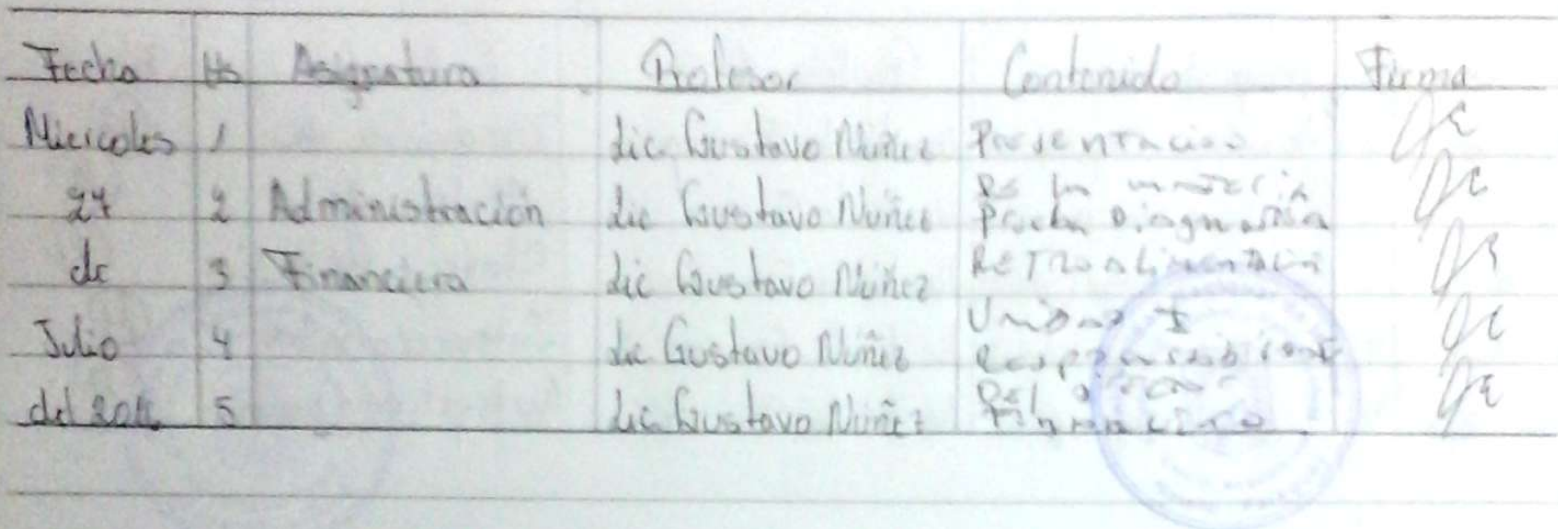 Fecha Hs Asignatura Profesor Contenido Firma
Miercoles 1 Lic. Gustavo Nuñez Presentacion
27 2 Administración Lic Gustavo Nuñez De la materia
Prueba Diagnostica
de 3 Financiera Lic Gustavo Nuñez Retroalimentación
Julio 4 Lic Gustavo Nuñez Unidad I
del 5 Lic. Gustavo Nuñez Del
Financiero